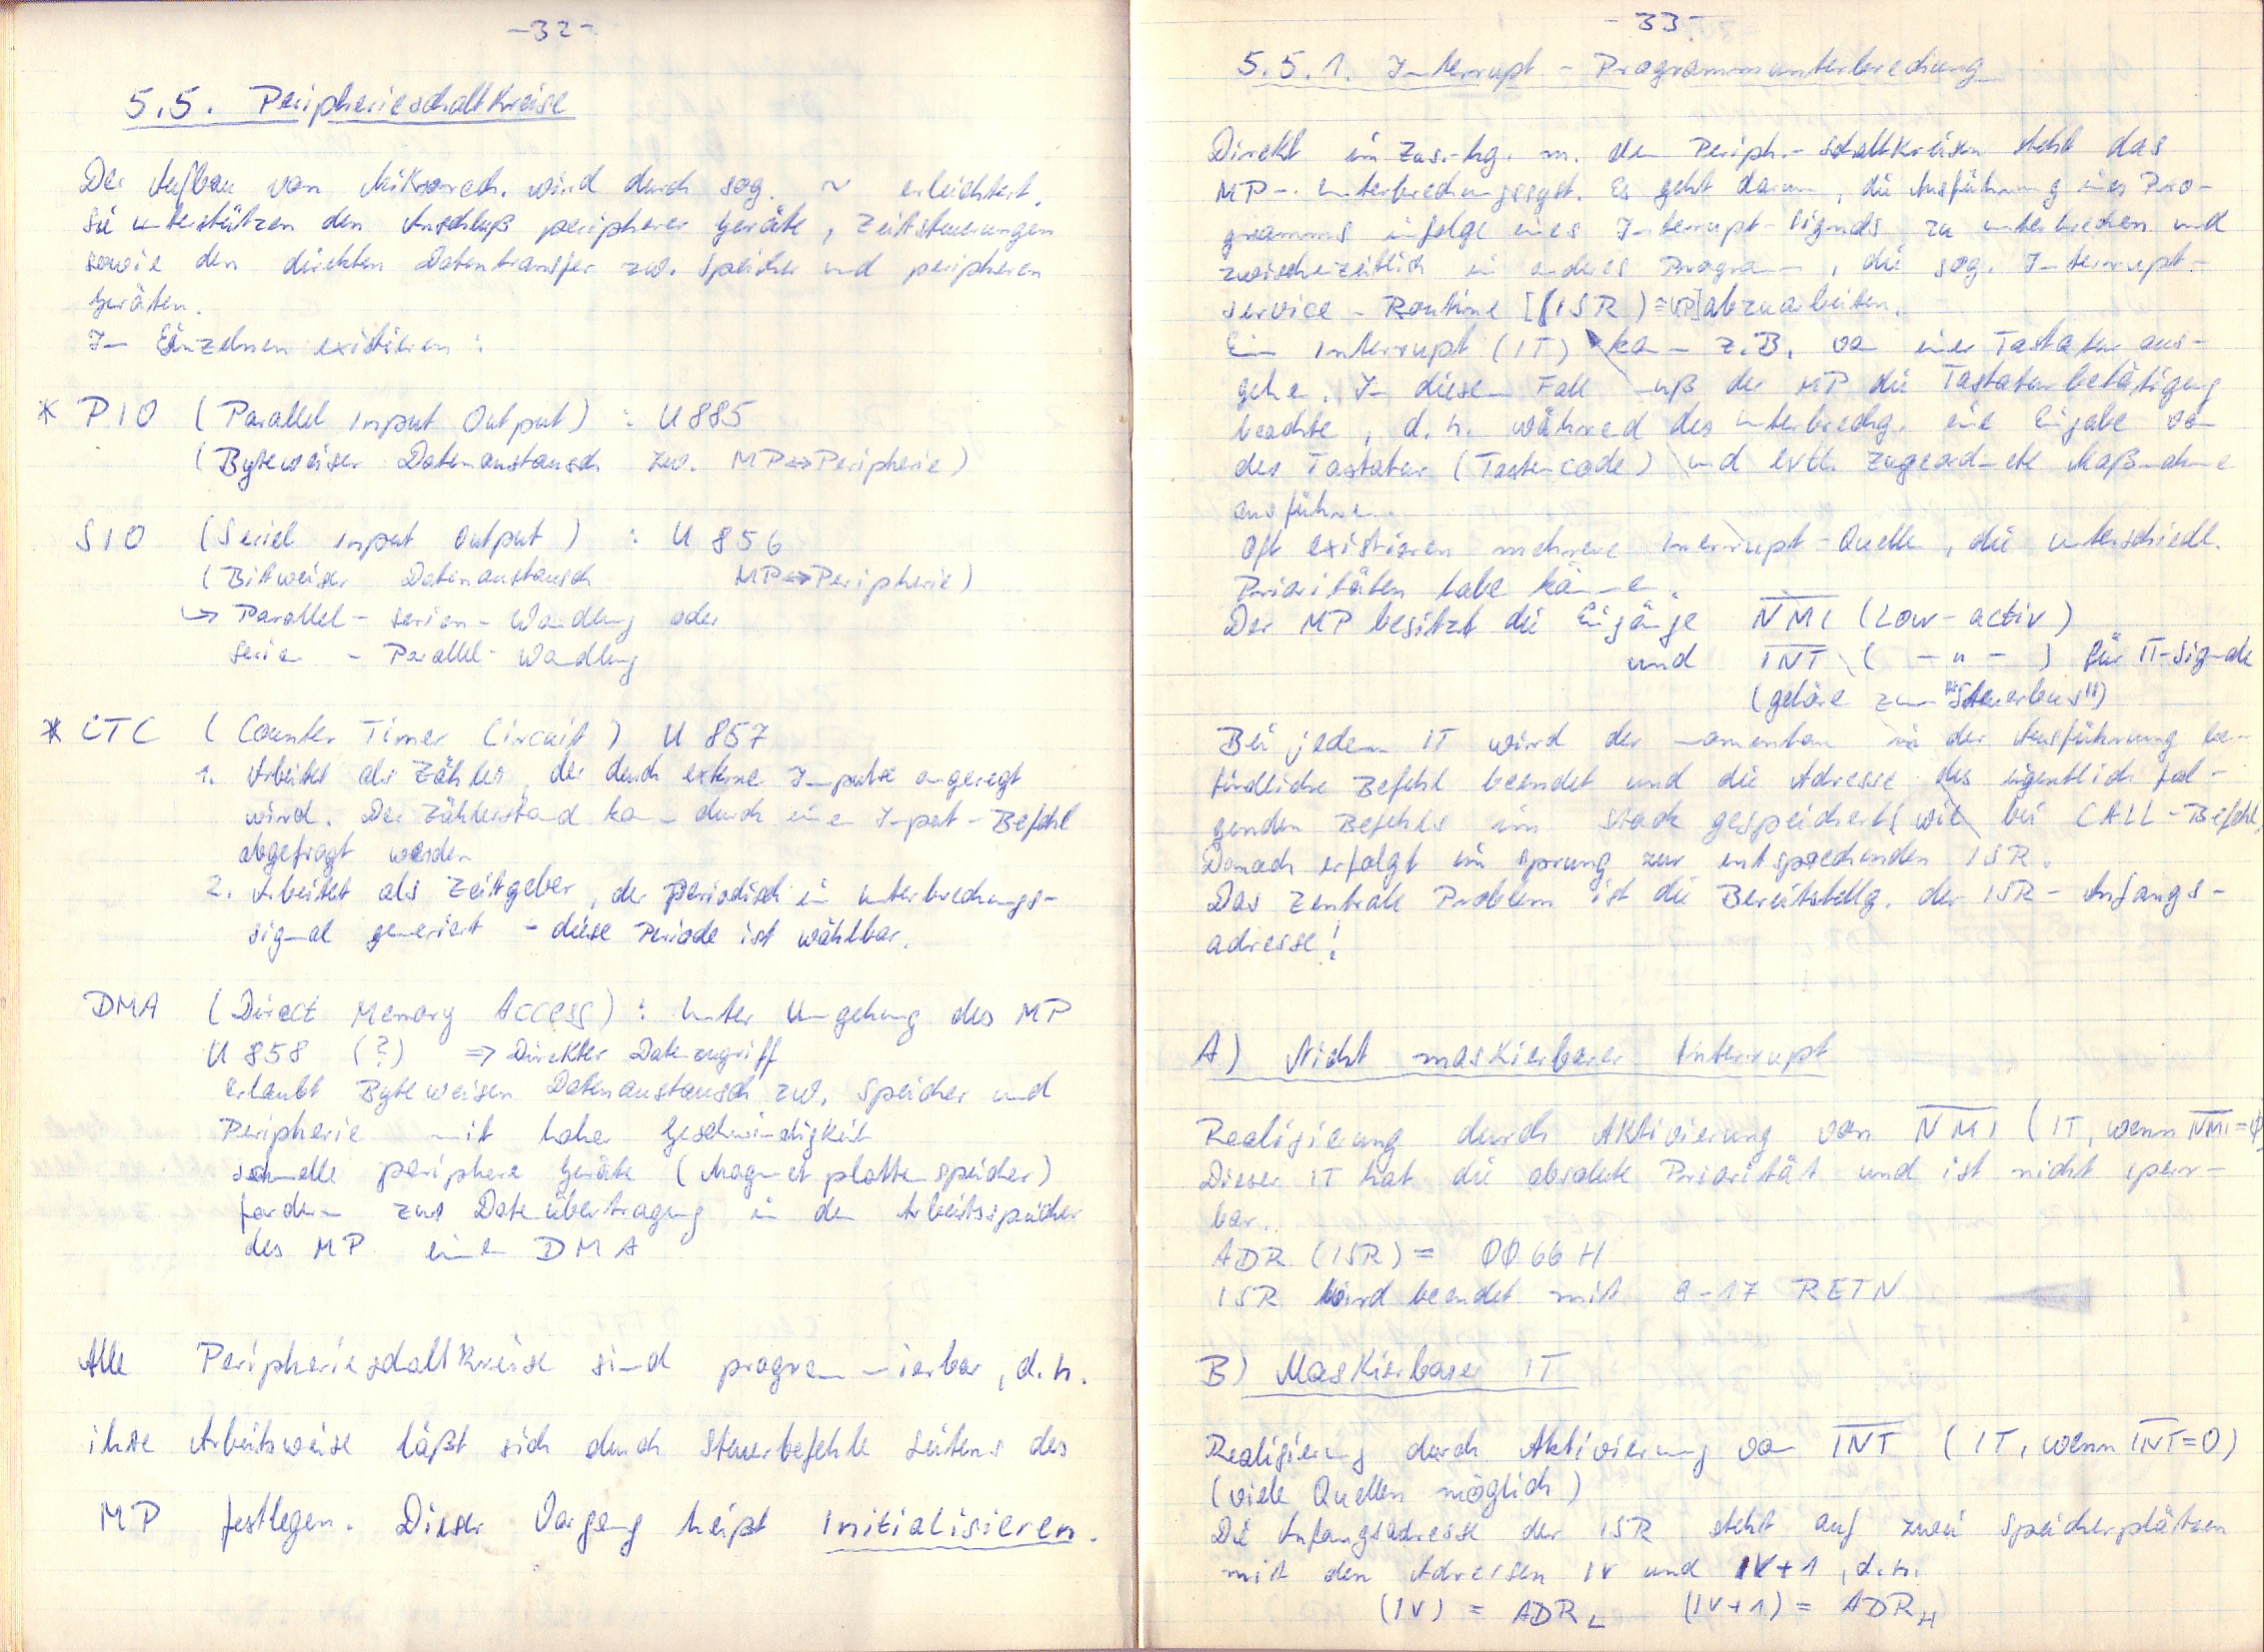 -32-
5.5. Peripherieschaltkreise
Der Aufbau von Mikrorech. wird durch sog. ~ erleichtert.
Sie unterstützen den Anschluß peripherer Geräte, Zeitsteuerungen
sowie den direkten Datentransfer zw. Speicher und peripheren
Geräten.
Im Einzelnen existieren:
* PIO (Parallel Input Output) : U 885
(Byteweiser Datenaustausch zw. MP⇔Peripherie)
SIO (Seriel Input Output) : U 856
(Bitweiser Datenaustausch MP⇔Peripherie)
↳ Parallel - serien - Wandlung oder
Serien - Parallel - Wandlung
* CTC (Counter Timer Circuit) U 857
1. Arbeitet als Zähler, der durch externe Impulse angeregt
wird. Der Zählerstand kann durch einen Input-Befehl
abgefragt werden
2. Arbeitet als Zeitgeber, der periodisch ein Unterbrechungs-
signal generiert - diese Periode ist wählbar.
DMA (Direct Memory Access) : Unter Umgehung des MP
U 858 (?) ⇒ Direkter Datenzugriff
erlaubt Byteweisen Datenaustausch zw. Speicher und
Peripherie mit hoher Geschwindigkeit
schnelle periphere Geräte (Magnetplattenspeicher)
fordern zur Datenübertragung in den Arbeitsspeicher
des MP einen DMA
Alle Peripherieschaltkreise sind programmierbar, d.h.
ihre Arbeitsweise läßt sich durch Steuerbefehle seitens des
MP festlegen. Dieser Vorgang heißt Initialisieren.
-33-
5.5.1. Interrupt - Programmunterbrechung
Direkt im Zus.-hg. m. den Periph.-schaltkreisen steht das
MP-Unterbrechungssyst. Es geht darum, die Ausführung eines Pro-
gramms infolge eines Interrupt-Signals zu unterbrechen und
zwischenzeitlich ein anderes Programm, die sog. Interrupt-
service-Routine [(ISR)≙UP] abzuarbeiten.
Ein Interrupt (IT) kann z.B. von einer Tastatur aus-
gehen. In diesem Fall muß der MP die Tastaturbetätigung
beachten, d.h. während des Unterbrechg. eine Eingabe von
der Tastatur (Tastencode) und evtl. zugeordnete Maßnahmen
ausführen.
Oft existieren mehrere Inerrupt-Quellen, die unterschiedl.
Prioritäten haben können.
Der MP besitzt die Eingänge N̅M̅I̅ (Low-activ)
und I̅N̅T̅ ( -"- ) für IT-Signale
(gehören zum "Steuerbus")
Bei jedem IT wird der momentan in der Ausführung be-
findliche Befehl beendet und die Adresse des eigentlich fol-
genden Befehls im Stack gespeichert (wie bei CALL-Befehl)
Danach erfolgt ein Sprung zur entsprechenden ISR.
Das zentrale Problem ist die Bereitstellg. der ISR-Anfangs-
adresse!
A) Nicht maskierbarer Interrupt
Realisierung durch Aktivierung von N̅M̅I̅ (IT, wenn N̅M̅I̅=0)
Dieser IT hat die absolute Priorität und ist nicht sperr-
bar.
ADR (ISR) = 0066 H
ISR wird beendet mit 9-17 RETN
B) Maskierbarer IT
Realisierung durch Aktivierung von I̅N̅T̅ (IT, wenn I̅N̅T̅=0)
(viele Quellen möglich)
Die Anfangsadresse der ISR steht auf zwei Speicherplätzen
mit den Adressen IV und IV+1, d.h.
(IV) = ADR_L (IV+1) = ADR_H